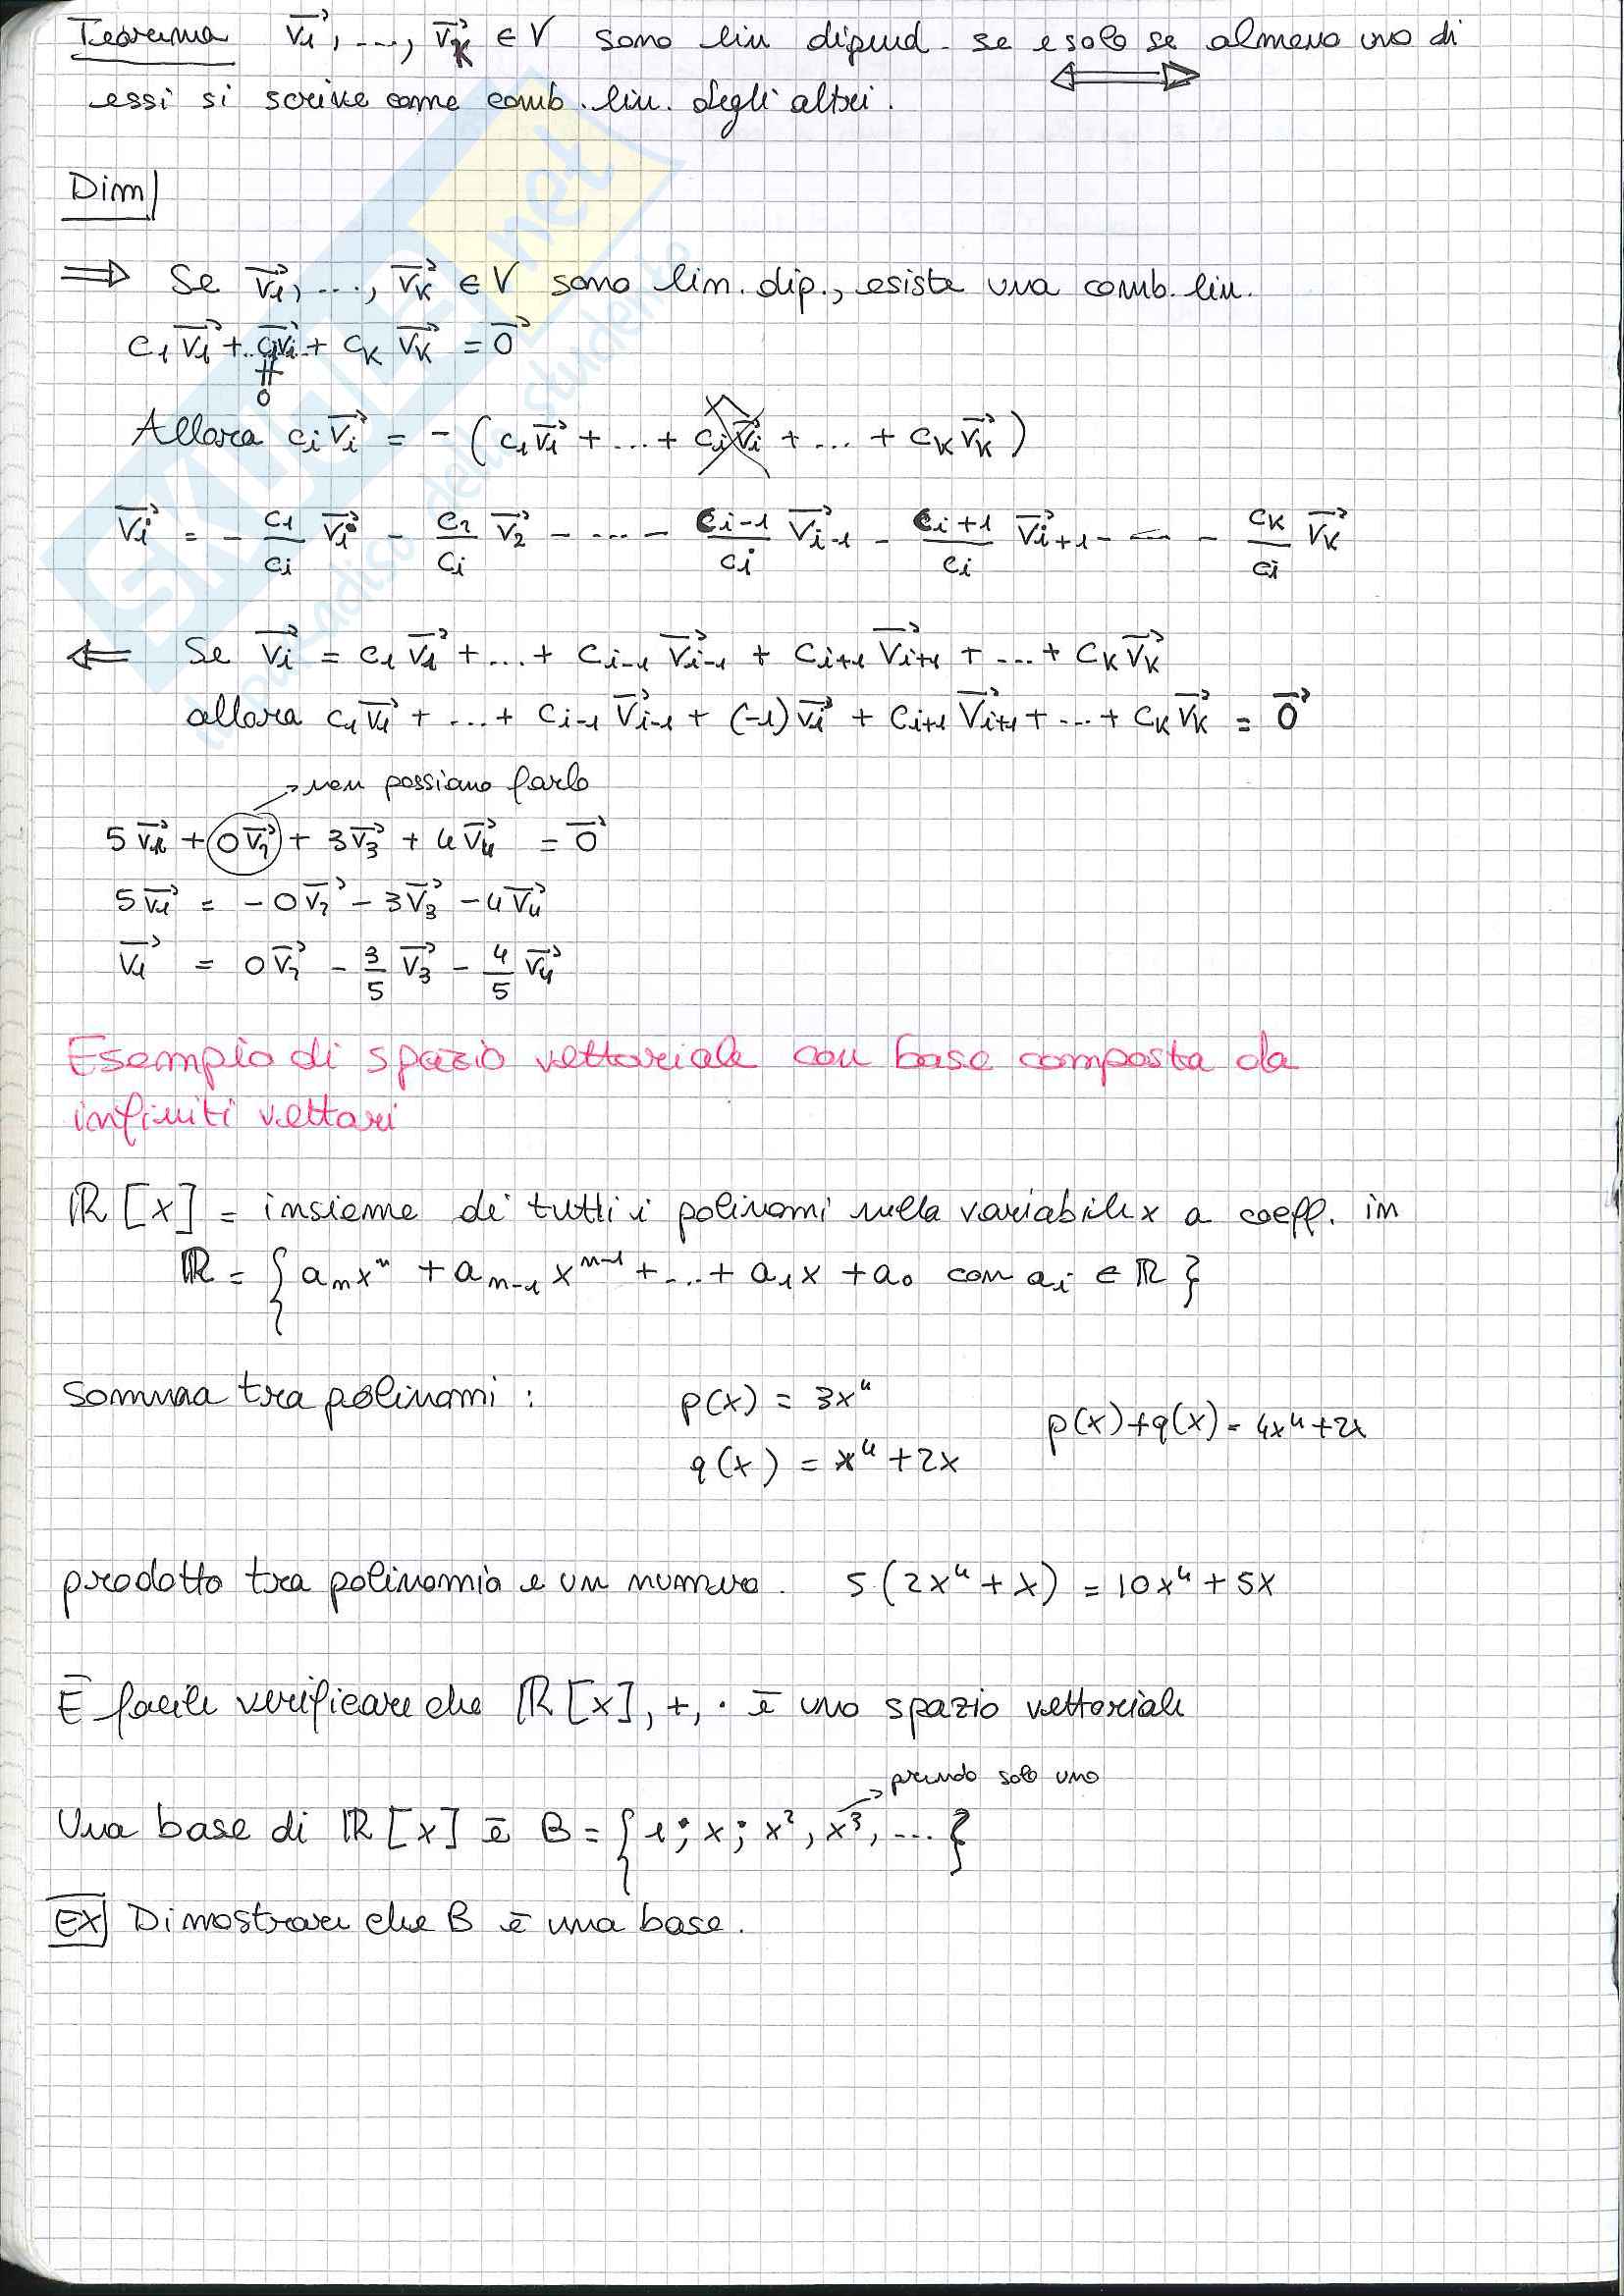 Teorema v₁, ..., vₖ ∈ V sono lin dipend. se e solo se almeno uno di
⟺
essi si scrive come comb. lin. degli altri.
Dim
⇒ Se v₁, ..., vₖ ∈ V sono lin. dip., esiste una comb. lin.
c₁v₁ + .. cᵢvᵢ .. + cₖvₖ = 0
≠
0
Allora cᵢvᵢ = - (c₁v₁ + ... + cᵢvᵢ + ... + cₖvₖ)
vᵢ = - c₁/cᵢ v₁ - c₂/cᵢ v₂ - ... - cᵢ₋₁/cᵢ vᵢ₋₁ - cᵢ₊₁/cᵢ vᵢ₊₁ - ... - cₖ/cᵢ vₖ
⇐ Se vᵢ = c₁v₁ + ... + cᵢ₋₁vᵢ₋₁ + cᵢ₊₁vᵢ₊₁ + ... + cₖvₖ
allora c₁v₁ + ... + cᵢ₋₁vᵢ₋₁ + (-1)vᵢ + cᵢ₊₁vᵢ₊₁ + ... + cₖvₖ = 0
→ non possiamo farlo
5v₁ + 0v₂ + 3v₃ + 4v₄ = 0
5v₁ = -0v₂ - 3v₃ - 4v₄
v₁ = 0v₂ - 3/5 v₃ - 4/5 v₄
Esempio di spazio vettoriale con base composta da
infiniti vettori
ℝ[x] = insieme di tutti i polinomi nella variabile x a coeff. in
ℝ = { aₙxⁿ + aₙ₋₁xⁿ⁻¹ + ... + a₁x + a₀ con aᵢ ∈ ℝ }
somma tra polinomi : p(x) = 3x⁴
p(x)+q(x) = 4x⁴+2x
q(x) = x⁴+2x
prodotto tra polinomio e un numero. 5(2x⁴+x) = 10x⁴+5x
È facile verificare che ℝ[x], +, · è uno spazio vettoriale
→ prendo solo uno
Una base di ℝ[x] è B = { 1; x; x², x³, ... }
EX Dimostrare che B è una base.